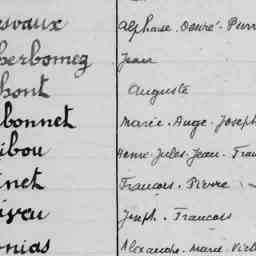 esvaux Alphonse Désiré Pierr
herbomez Jean
hont Auguste
bonnet Marie-Ange-Joseph
ibou Henri-Jules-Jean-Fran
inet François-Pierre
Joseph-François
onias Alexandre-Marie-Vict